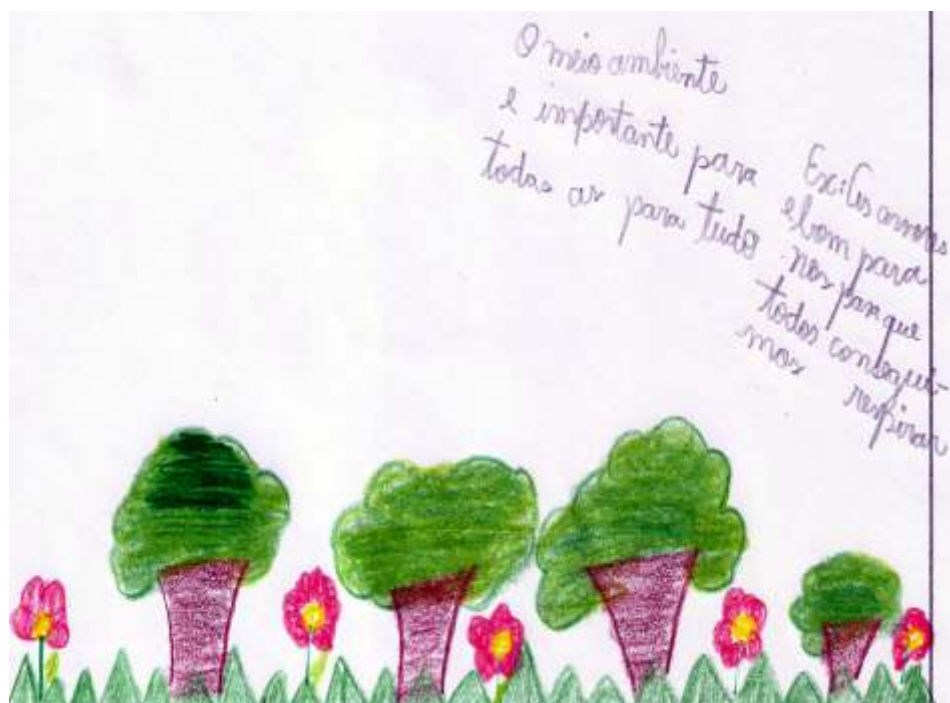 O meio ambiente
e importante para
todas as para tudo
Ex: As arvores
e bom para
nos par que
todos consegui-
mos respirar